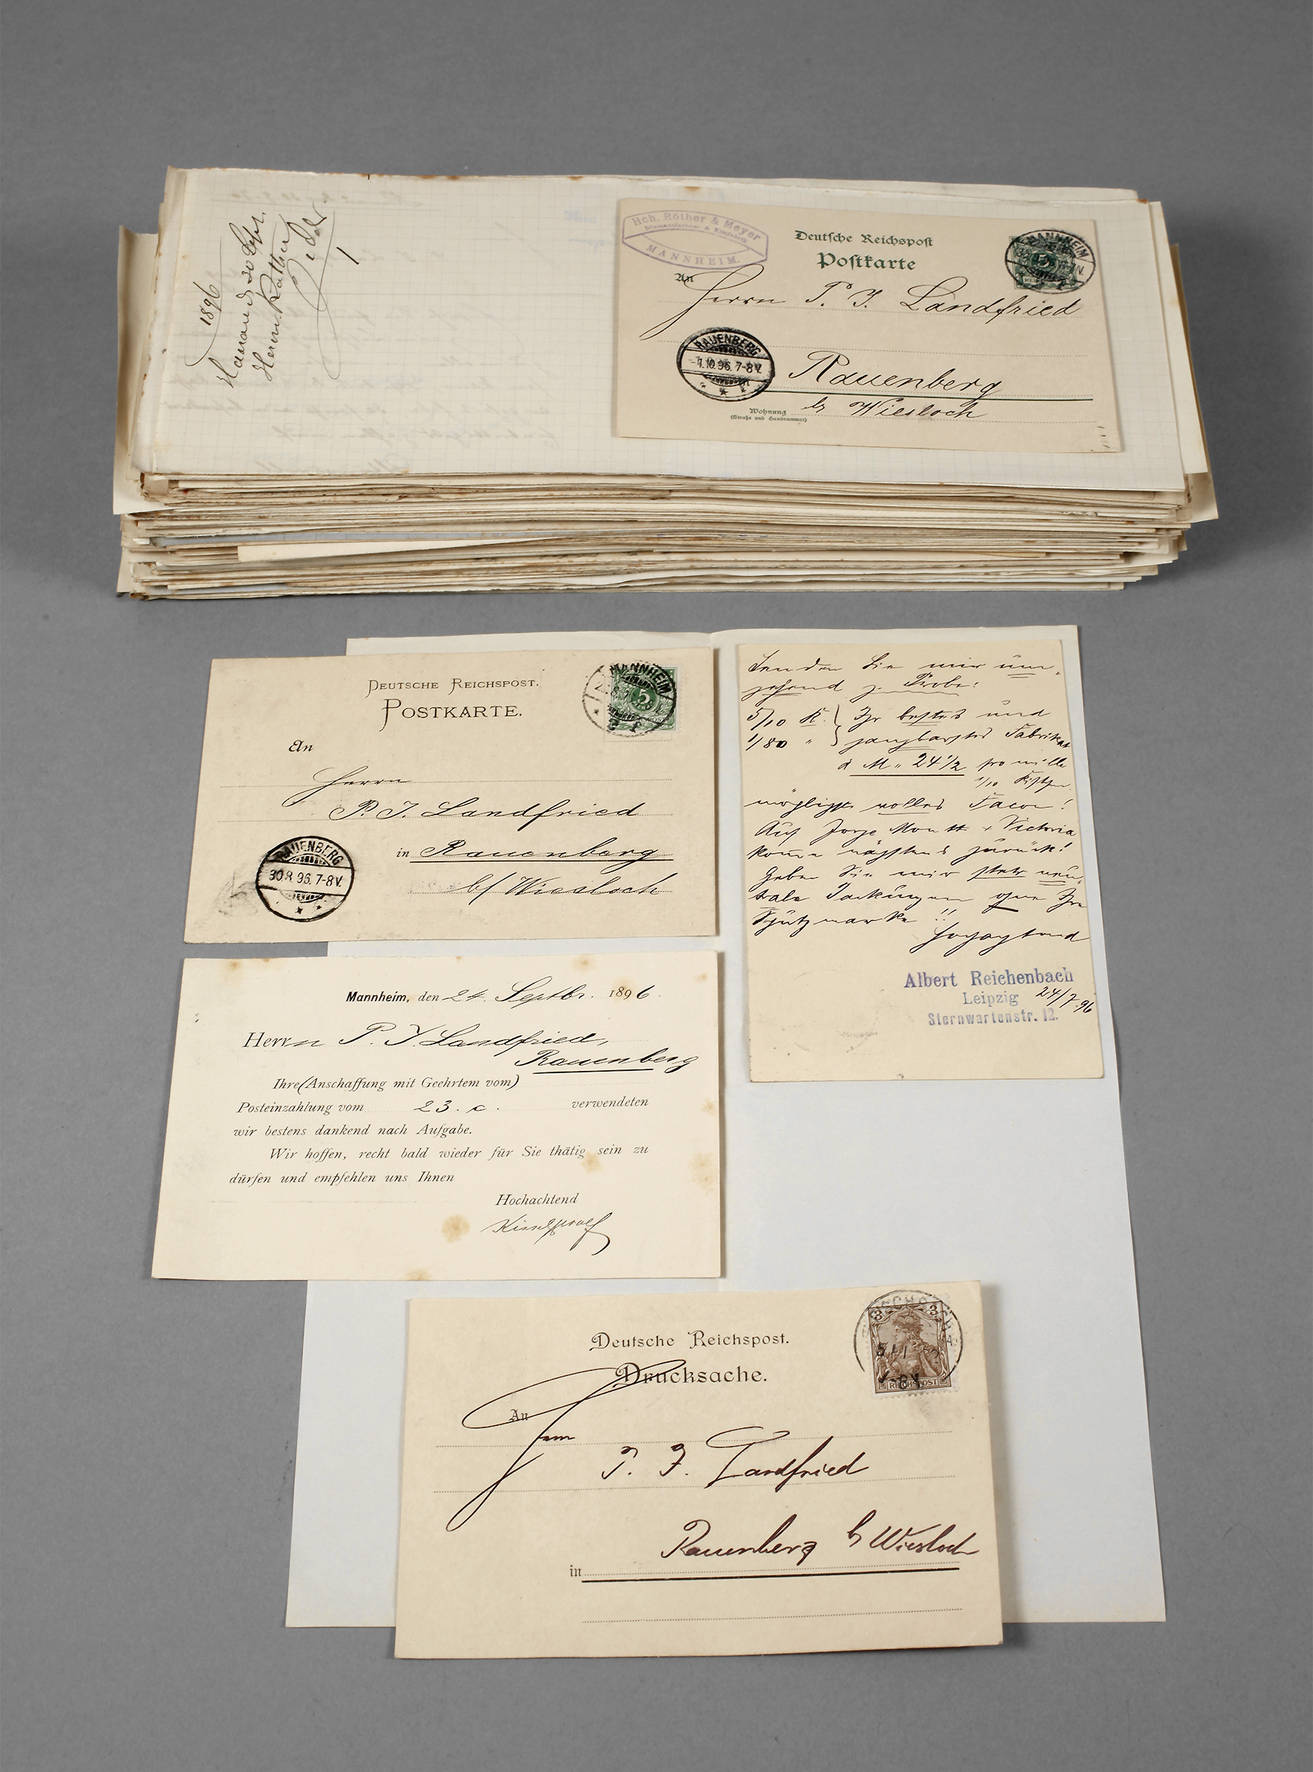 1896
Hanau d. 20 Spr.
Hch. Röther & Meyer
MANNHEIM.
Deutsche Reichspost
Postkarte
MANNHEIM
An
Herrn P. J. Landfried
RAUENBERG
1.10.96. 7-8V.
Rauenberg
b/ Wiesloch
Wohnung
(Straße und Hausnummer)
DEUTSCHE REICHSPOST.
POSTKARTE.
MANNHEIM
5
An
Herrn
P. J. Landfried
in Rauenberg
b/ Wiesloch
RAUENBERG
30.8.96. 7-8V.
Senden Sie mir um-
gehend z. Probe:
5/10 K. Ihr bestes und
1/80 "
à M. 24 1/2 pro mille
1/10 Kisten
möglichst volles Facon!
Auf Jorge Montt + Victoria
komme nächstens zurück!
Geben Sie mir stets neu-
trale Packungen ohne Ihre
Schutzmarke!!
Hochachtend
Albert Reichenbach
Leipzig 24/7.96
Sternwartenstr. 12.
Mannheim, den 24. Septbr. 1896.
Herrn P. J. Landfried,
Rauenberg
Ihre (Anschaffung mit Geehrtem vom)
Posteinzahlung vom 23. c. verwendeten
wir bestens dankend nach Aufgabe.
Wir hoffen, recht bald wieder für Sie thätig sein zu
dürfen und empfehlen uns Ihnen
Hochachtend
Deutsche Reichspost.
Drucksache.
3 3
REICHSPOST
An
Herrn
P. J. Landfried
Rauenberg b/ Wiesloch
in